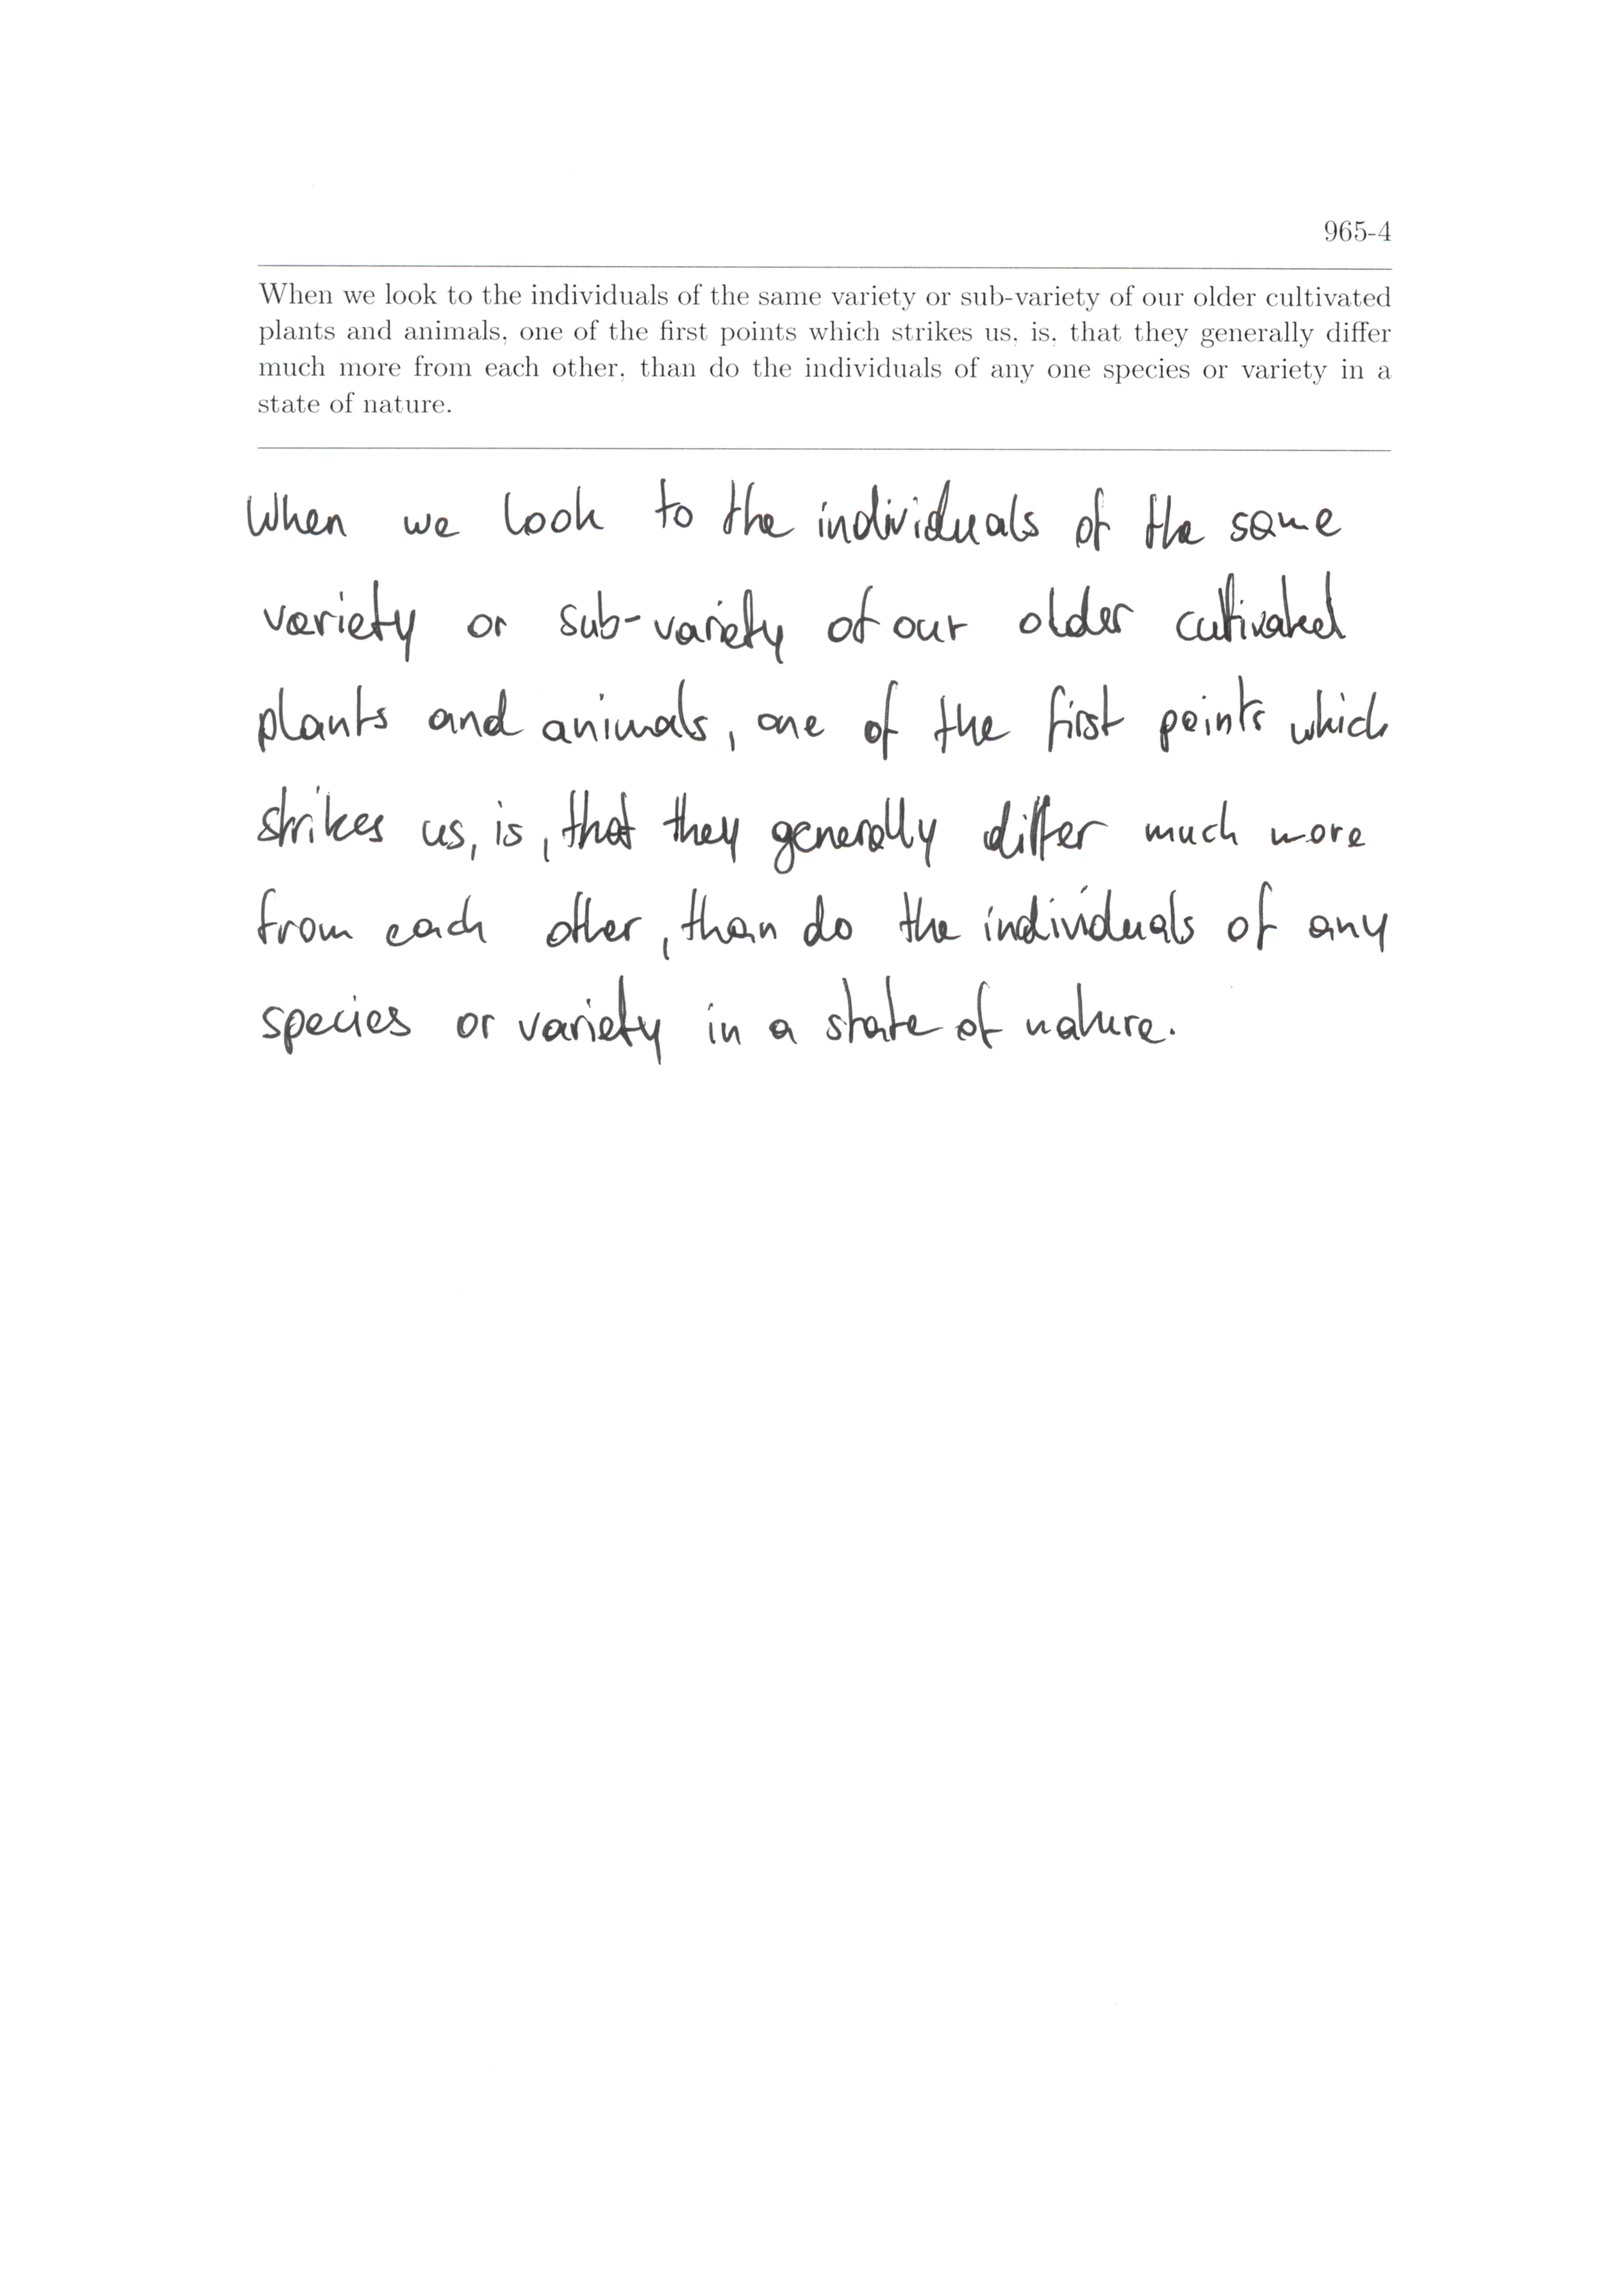 965-4
When we look to the individuals of the same variety or sub-variety of our older cultivated
plants and animals, one of the first points which strikes us, is, that they generally differ
much more from each other, than do the individuals of any one species or variety in a
state of nature.
When we look to the individuals of the same
variety or sub-variety of our older cultivated
plants and animals, one of the first points which
strikes us, is, that they generally differ much more
from each other, than do the individuals of any
species or variety in a state of nature.